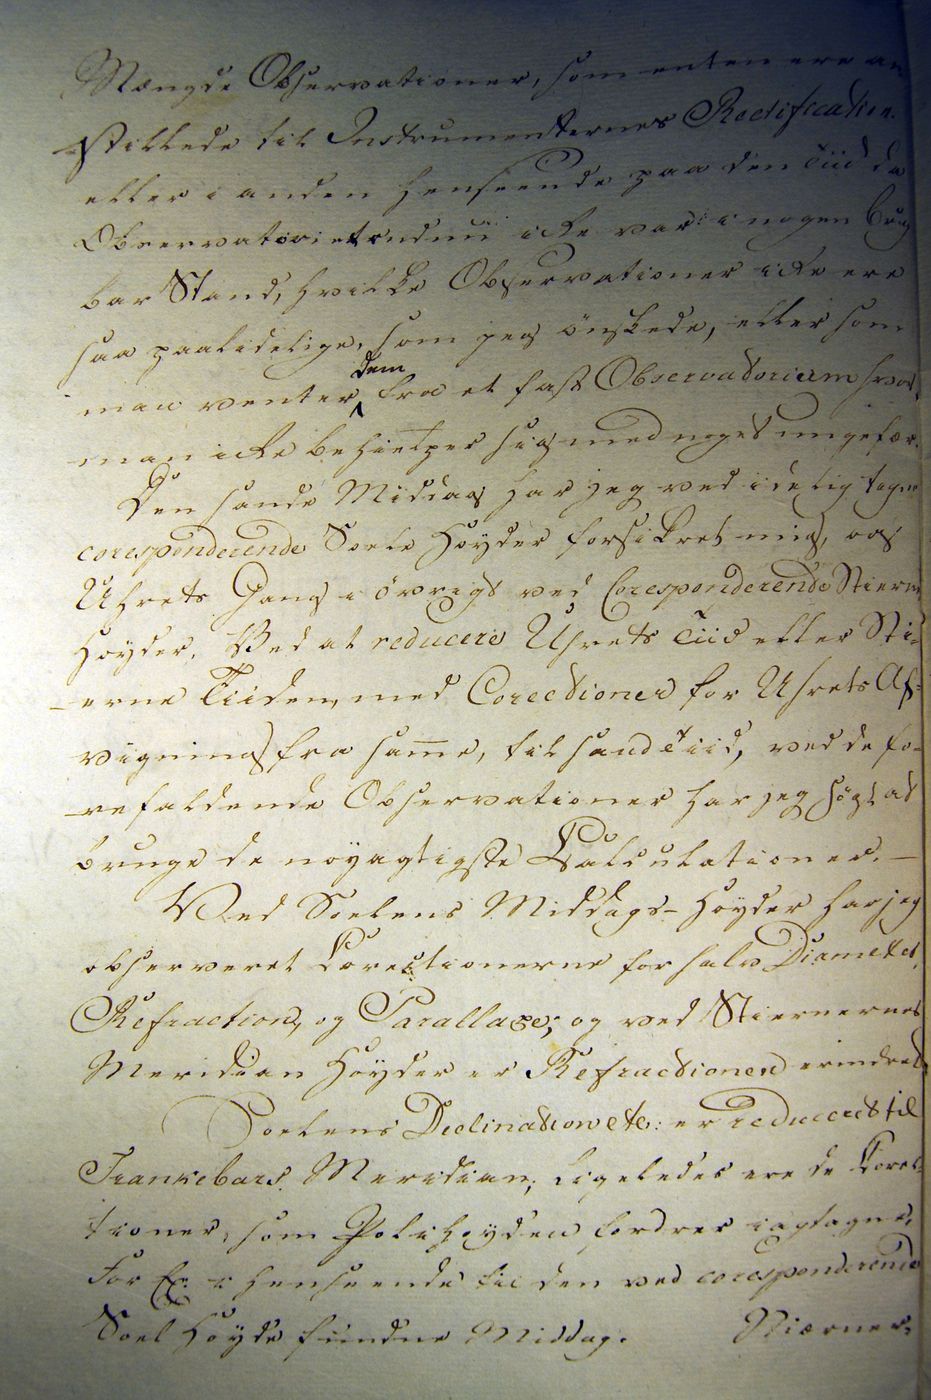 Mængde Observationer, som enten ere an
stillede til Instrumenternes Rectification.
eller i anden henseende paa den Tiid da
Observatoriet endnu icke var i nogen brug
bar Stand, hvilke Observationer icke ere
saa paalidelige, som jeg önskede, eller som
man venter dem fra et fast Observatorium hvor
man icke behielper sig med noget ungefær.
Den sande Middag har jeg ved idelig tagne
coresponderende Soele Höyder forsikret mig, og
Uhrets Gang i övrigt ved Coresponderende Stierne
Höyder. Ved at reducere Uhrets Tiid eller Sti-
-erne Tiiden, med Corectioner for Uhrets Af-
vigning fra samme, til sand Tiid, ved de fo-
refaldende Observationer har jeg sögt at
bruge de nöyagtigste Calculationer. —
Ved Soelens Middags-Höyder har jeg
observeret Corectionerne for halv Diameter,
Refraction, og Parallaxe; og ved Stiernernes
Meridian Höyder er Refractionen erindret
Soelens Declination etc: er reduceret til
Trankebars Meridian, ligeledes ere de Corec-
tioner, som Polihöyden fordrer iagttagne,
for Ex: i henseende til den ved coresponderende
Soel Höyde fundne Middag. Stierner,